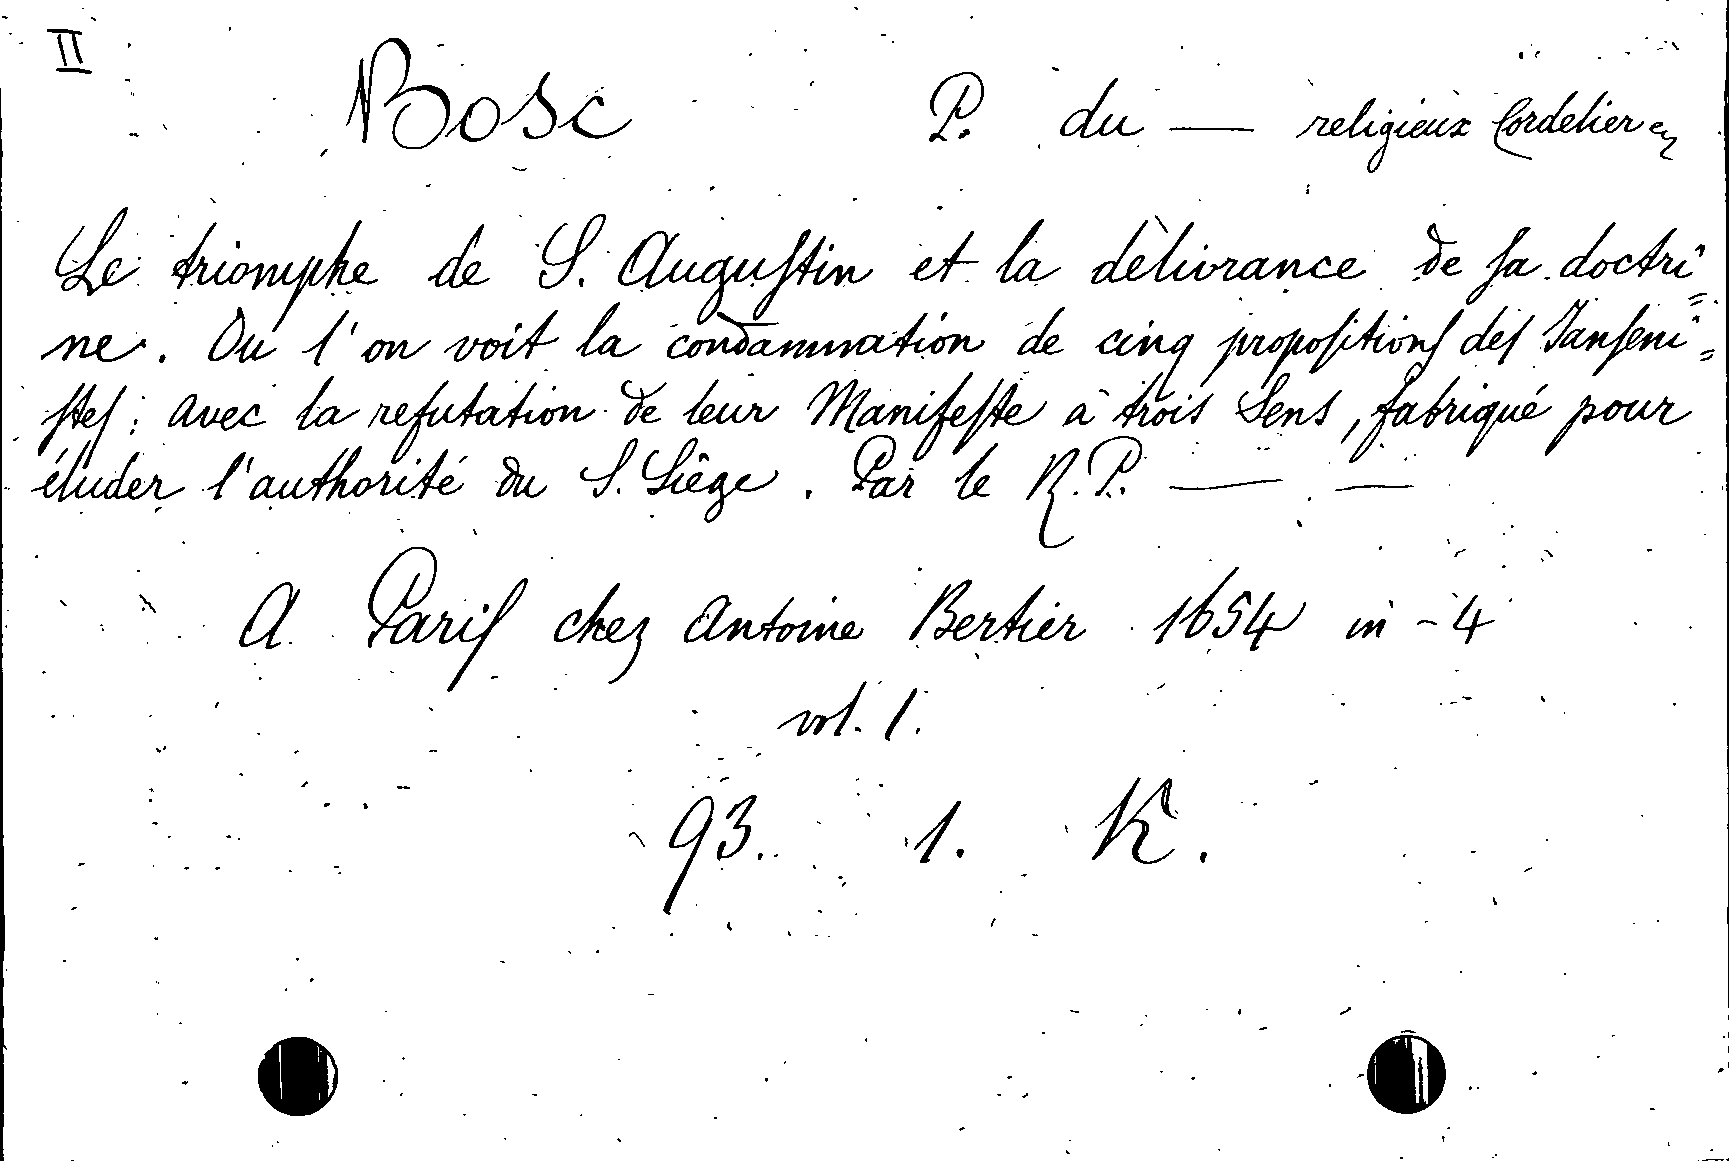 II
Bosc P. du — religieux Cordelier
Le triomphe de S. Auguſtin et la délivrance de ſa doctri=
ne. Ou l'on voit la condamnation de cinq propoſitionſ deſ Janſeni=
ſteſ: avec la refutation de leur Manifeſte à trois Sens, fabriqué pour
éluder l'authorité du S. Siêge. Par le R. P. — —
A Pariſ chez Antoine Bertier 1654 in-4
vol. 1.
93. 1. K.